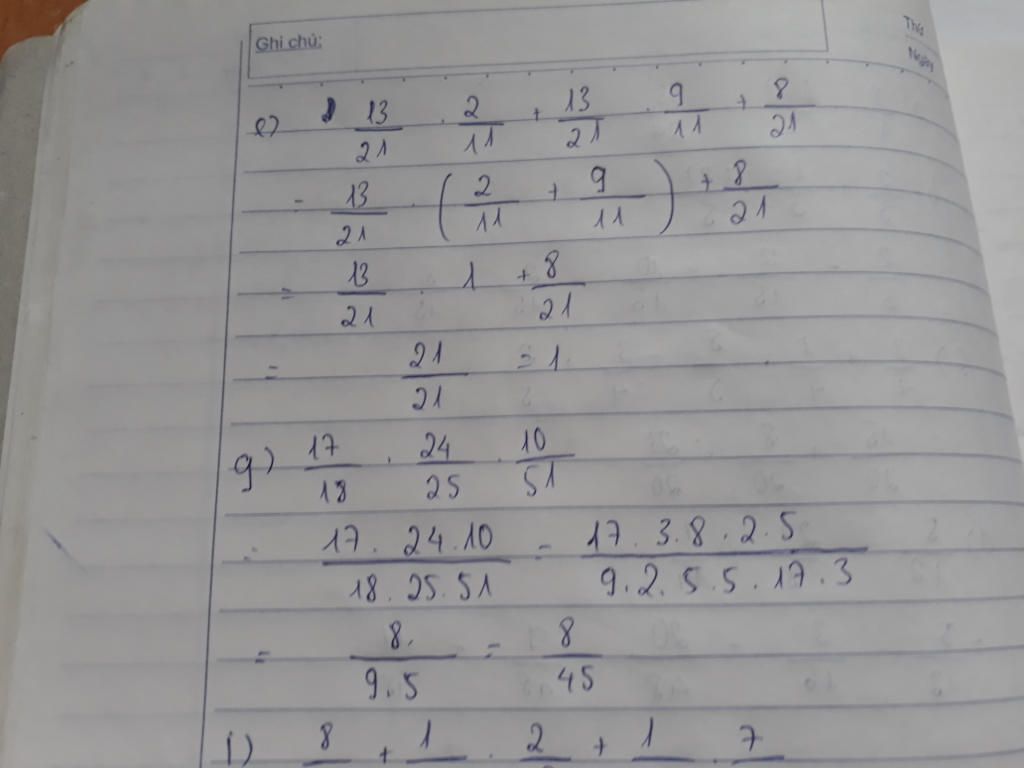 Ghi chú:
Thứ
Ngày
e) 13/21 . 2/11 + 13/21 . 9/11 + 8/21
= 13/21 . (2/11 + 9/11) + 8/21
= 13/21 . 1 + 8/21
= 21/21 = 1
g) 17/18 . 24/25 . 10/51
= 17 . 24 . 10/18 . 25 . 51 = 17 . 3 . 8 . 2 . 5/9 . 2 . 5 . 5 . 17 . 3
= 8./9 . 5 = 8/45
i) 8 + 1 . 2 + 1 . 7